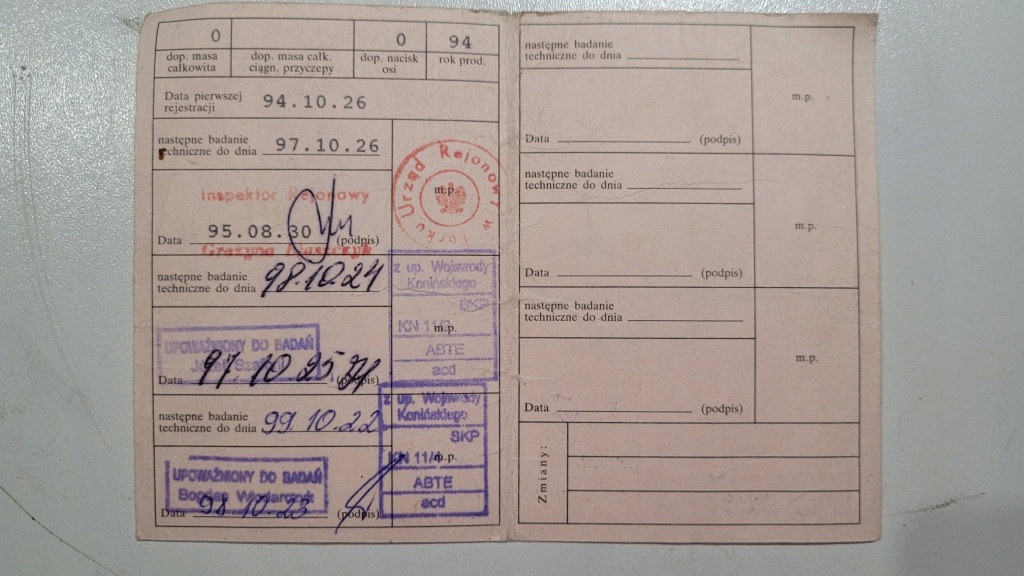 0 0 94
dop. masa całkowita
dop. masa całk. ciągn. przyczepy
dop. nacisk osi
rok prod.
Data pierwszej rejestracji 94.10.26
następne badanie
techniczne do dnia 97.10.26
Inspektor Rejonowy
Data 95.08.30 (podpis)
Grażyna
Urząd Rejonowy w Turku
m.p.
następne badanie
techniczne do dnia 98.10.24
UPOWAŻNIONY DO BADAŃ
Data 97.10.25 (podpis)
z up. Wojewody
Konińskiego
SKP
KN 11/ m.p.
ABTE
acd
następne badanie
techniczne do dnia 99.10.22
UPOWAŻNIONY DO BADAŃ
Bogdan Włodarczyk
Data 98.10.23 (podpis)
z up. Wojewody
Konińskiego
SKP
KN 11/ m.p.
ABTE
acd
następne badanie
techniczne do dnia
m.p.
Data (podpis)
następne badanie
techniczne do dnia
m.p.
Data (podpis)
następne badanie
techniczne do dnia
m.p.
Data (podpis)
Zmiany: